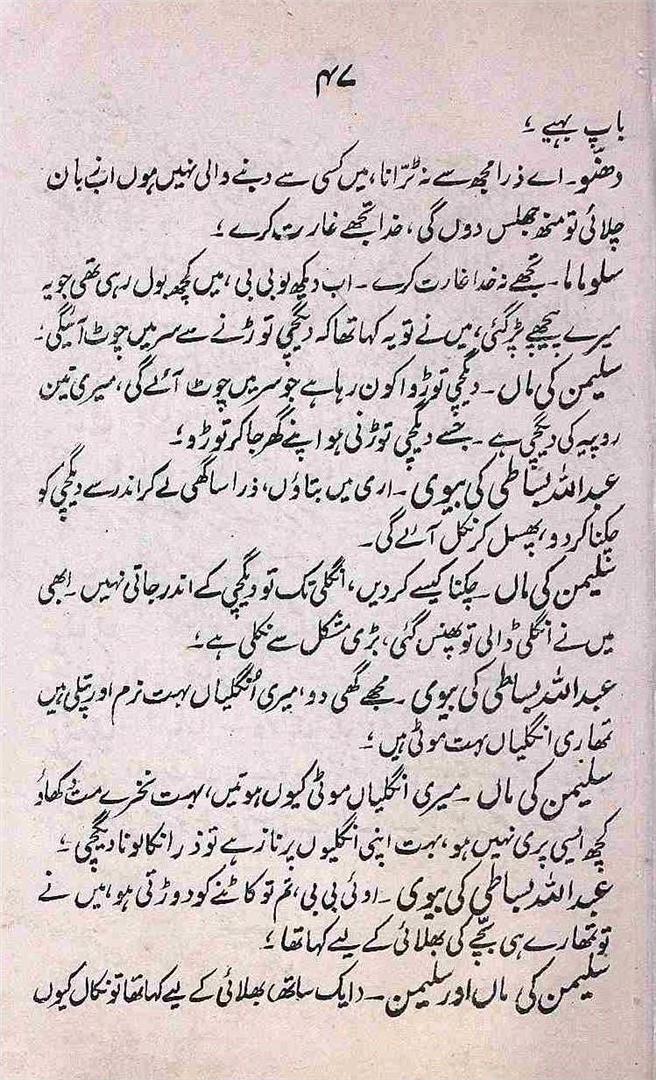 ۴۷
باپ بہیے ؛
دھنّو۔ اے ذرا مجھ سے نہ ٹرّانا، میں کسی سے دبنے والی نہیں ہوں اب زبان
چلائی تو منھ جھلس دوں گی، خدا تجھے غارت کرے ؛
سلو ماما۔ تجھے نہ خدا غارت کرے۔ اب دیکھ لو بی بی، میں کچھ بول رہی تھی جو یہ
میرے پیچھے پڑ گئی، میں نے تو یہ کہا تھا کہ دیگچی توڑنے سے سر میں چوٹ آئیگی؛
سلیمن کی ماں۔ دیگچی توڑوا کون رہا ہے جو سر میں چوٹ آئے گی، میری تین
روپیہ کی دیگچی ہے۔ جسے دیگچی توڑنی ہو اپنے گھر جا کر توڑو ؛
عبداللہ بساطی کی بیوی۔ اری میں بتاؤں، ذرا سا گھی لے کر اندر سے دیگچی کو
چکنا کر دو، پھسل کر نکل آئے گی۔
سلیمن کی ماں۔ چکنا کیسے کر دیں، انگلی تک تو دیگچی کے اندر جاتی نہیں۔ ابھی
میں نے انگلی ڈالی تو پھنس گئی، بڑی مشکل سے نکلی ہے ؛
عبداللہ بساطی کی بیوی۔ مجھے گھی دو، میری اُنگلیاں بہت نرم اور پتلی ہیں
تمھاری انگلیاں بہت موٹی ہیں ؛
سلیمن کی ماں۔ میری انگلیاں موٹی کیوں ہوتیں، بہت نخرے مت دکھاؤ
کچھ ایسی پری نہیں ہو، بہت اپنی انگلیوں پر ناز ہے تو ذرا نکالو نا دیگچی ؛
عبداللہ بساطی کی بیوی۔ اوئی بی بی، تم تو کاٹنے کو دوڑتی ہو، میں نے
تو تمھارے ہی بچّے کی بھلائی کے لیے کہا تھا ؛
سلیمن کی ماں اور سلیمن۔ (ایک ساتھ) بھلائی کے لیے کہا تھا تو نکال کیوں